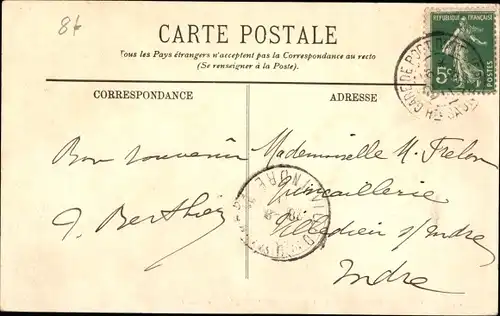 8f
CARTE POSTALE
Tous les Pays étrangers n'acceptent pas la Correspondance au recto
(Se renseigner à la Poste).
RÉPUBLIQUE FRANÇAISE
5c
POSTES
GARE DE
CORRESPONDANCE
ADRESSE
Bon souvenir
J. Berthier
Mademoiselle M. Frelon
Quincaillerie
Villedieu s/Indre
Indre
INDRE